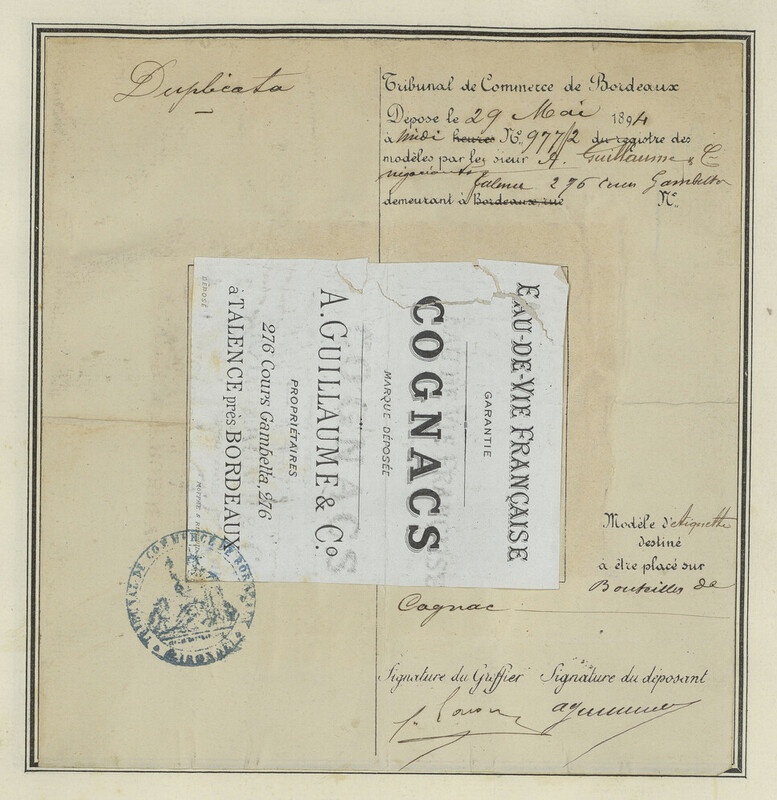 Duplicata
Tribunal de Commerce de Bordeaux
Déposé le 29 Mai 1894
à Midi heures N° 977/2 du registre des
modèles par les sieur A. Guillaume & Cie
négociants 276 cours Gambetta
demeurant à Bordeaux rue N°
EAU-DE-VIE FRANÇAISE
GARANTIE
COGNACS
MARQUE DÉPOSÉE
A. GUILLAUME & Co.
PROPRIÉTAIRES
276 Cours Gambetta, 276
à TALENCE près BORDEAUX
DÉPOSÉ
Modèle d'étiquette
destiné
à être placé sur
Bouteilles de
Cognac
TRIBUNAL DE COMMERCE DE BORDEAUX
GIRONDE
Signature du Greffier Signature du déposant